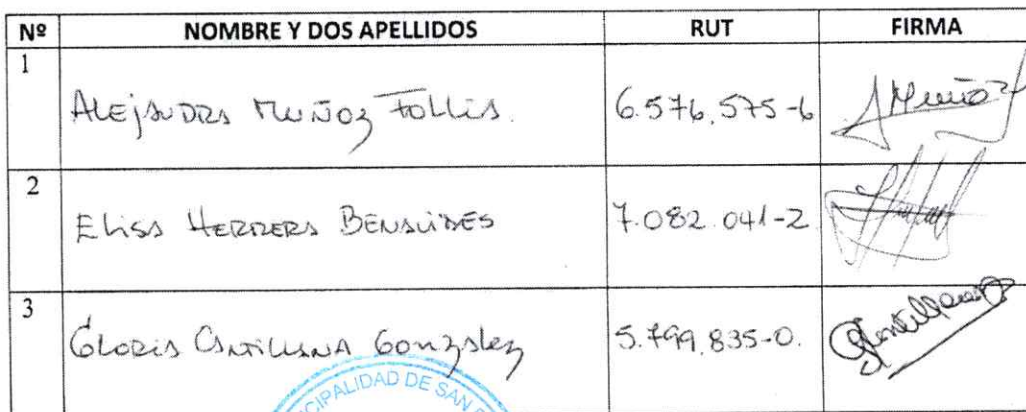 Nº NOMBRE Y DOS APELLIDOS RUT FIRMA
1 Alejandra Muñoz Follis. 6.576.575-6 AMuñoz
2 Elisa Herrera Benavides 7.082.041-2
3 Gloria Cantillana Gonzalez 5.799.835-0.
CIPALIDAD DE SAN